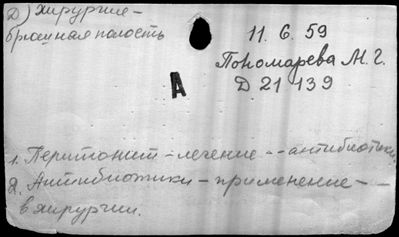 Д) хирургия –
брюшная полость
11. 6. 59
Пономарева М. Г.
Д 21 139
А
1. Перитонит – лечение – – антибиотики.
2. Антибиотики – применение – –
в хирургии.